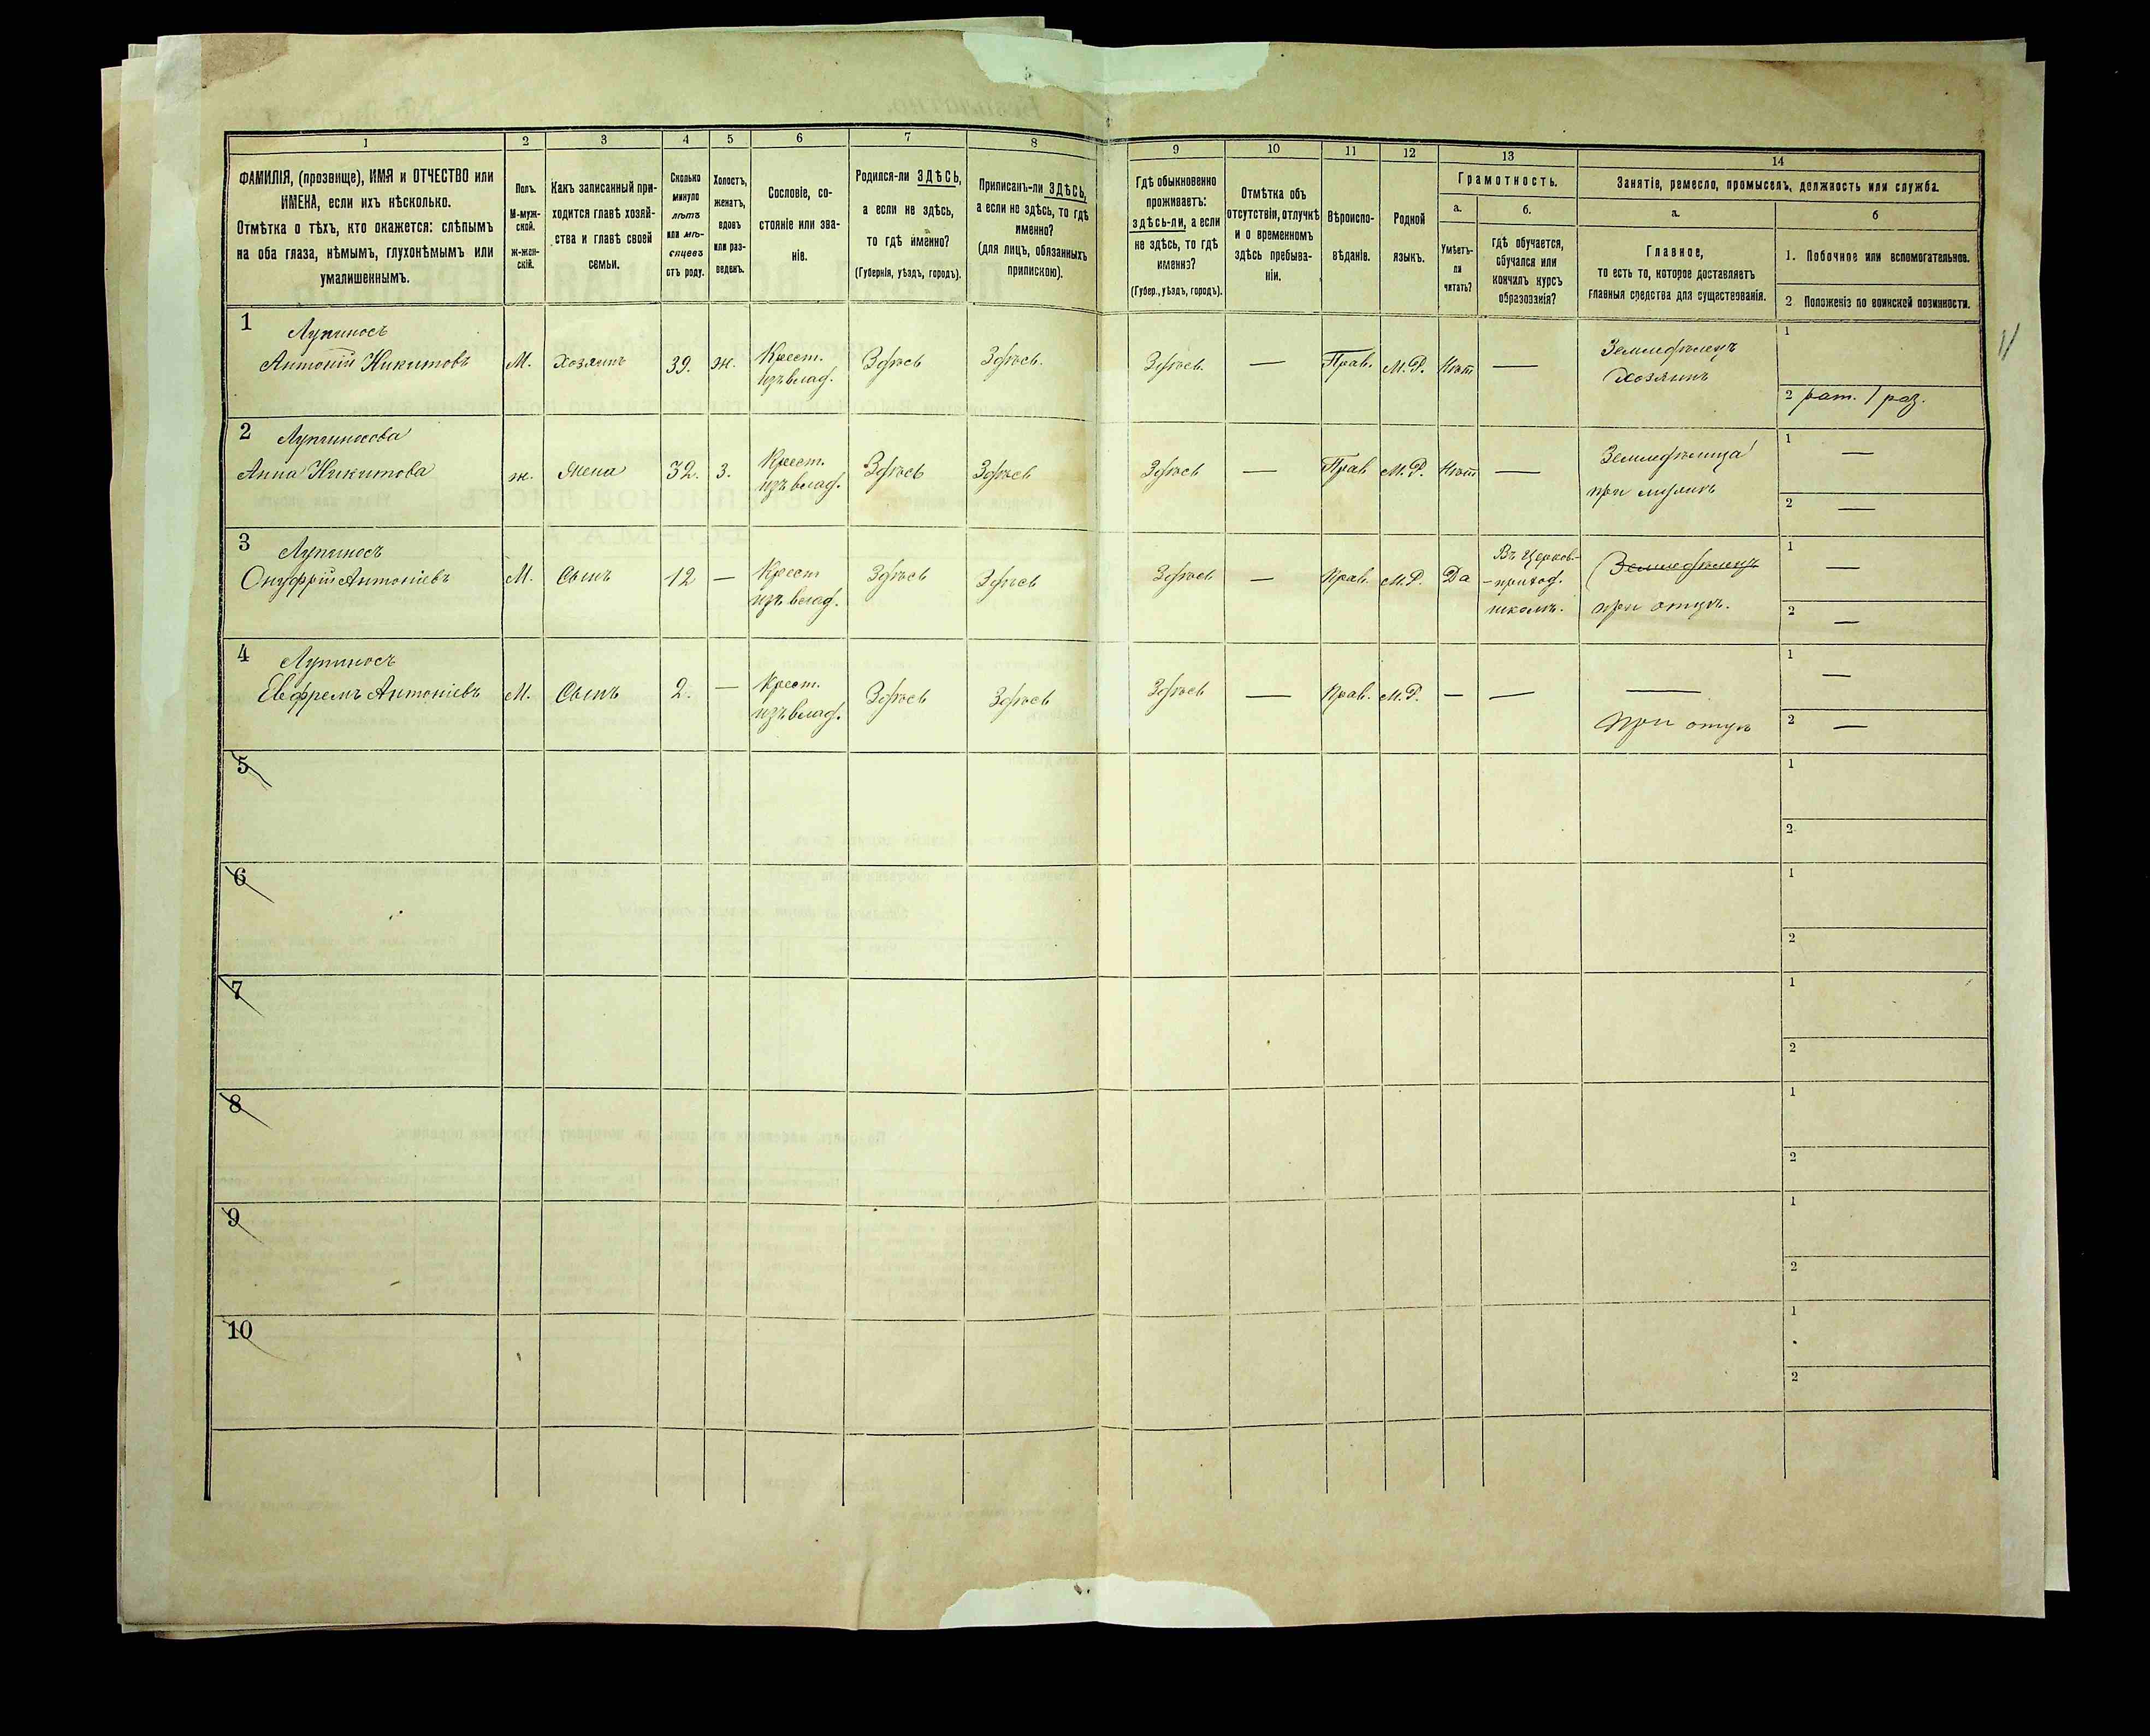 1 2 3 4 5 6 7 8 9 10 11 12 13 14
ФАМИЛІЯ, (прозвище), ИМЯ и ОТЧЕСТВО или
ИМЕНА, если ихъ нѣсколько.
Отмѣтка о тѣхъ, кто окажется: слѣпымъ
на оба глаза, нѣмымъ, глухонѣмымъ или
умалишеннымъ.
Полъ.
М-муж-
ской.
ж-жен-
скій.
Какъ записанный при-
ходится главѣ хозяй-
ства и главѣ своей
семьи.
Сколько
минуло
лѣтъ
или мѣ-
сяцевъ
отъ роду.
Холостъ,
женатъ,
вдовъ
или раз-
веденъ.
Сословіе, со-
стояніе или зва-
ніе.
Родился-ли ЗДѢСЬ,
а если не здѣсь,
то гдѣ именно?
(Губернія, уѣздъ, городъ).
Приписанъ-ли ЗДѢСЬ,
а если не здѣсь, то гдѣ
именно?
(для лицъ, обязанныхъ
припискою).
Гдѣ обыкновенно
проживаетъ:
здѣсь-ли, а если
не здѣсь, то гдѣ
именно?
(Губер., уѣздъ, городъ).
Отмѣтка объ
отсутствіи, отлучкѣ
и о временномъ
здѣсь пребыва-
ніи.
Вѣроиспо-
вѣданіе.
Родной
языкъ.
Грамотность.
а.
Умѣетъ-
ли
читать?
б.
гдѣ обучается,
обучался или
кончилъ курсъ
образованія?
Занятіе, ремесло, промыселъ, должность или служба.
а.
Главное,
то есть то, которое доставляетъ
главныя средства для существованія.
б
1. Побочное или вспомогательное.
2 Положеніе по воинской повинности.
1 Лупиносъ
Антоній Никитовъ М. хозяинъ 39. ж. Крест. Здѣсь Здѣсь. Здѣсь. — Прав. М.Р. Нѣт — Земледѣлецъ 1
изъ влад. Хозяинъ 2 рат. 1 раз.
2 Лупиносова
Анна Никитова ж. Жена 32. з. Крест. Здѣсь Здѣсь Здѣсь — Прав М.Р. Нѣт — Земледѣлица 1 —
изъ влад. при мужѣ 2 —
3 Лупиносъ
Онуфрій Антоніевъ М. Сынъ 12 — Крест Здѣсь Здѣсь Здѣсь — Прав. М.Р. Да Въ Церков- Земледѣлецъ 1 —
изъ влад. -приход.
школѣ. при отцѣ. 2 —
4 Лупиносъ
Евфремъ Антоніевъ М. Сынъ 2. — Крест. Здѣсь Здѣсь Здѣсь — Прав. М.Р. — — — 1 —
изъ влад. при отцѣ 2 —
5 1
2
6 1
2
7 1
2
8 1
2
9 1
2
10 1
2